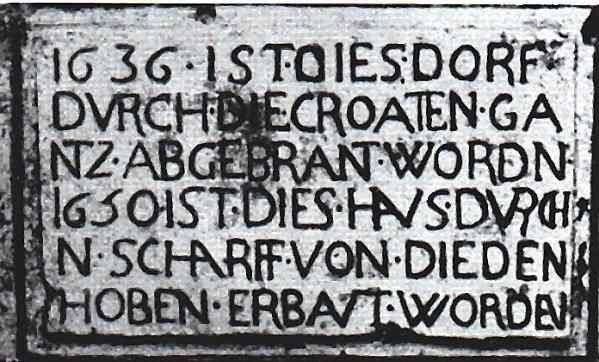 1636·IST·DIES·DORF
DVRCH·DIE CROATEN·GA
NTZ·ABGEBRANT·WORDN·
1650·IST·DIES·HAVS·DVRCH
N·SCHARFF·VON·DIEDEN
HOBEN·ERBAVT·WORDEN